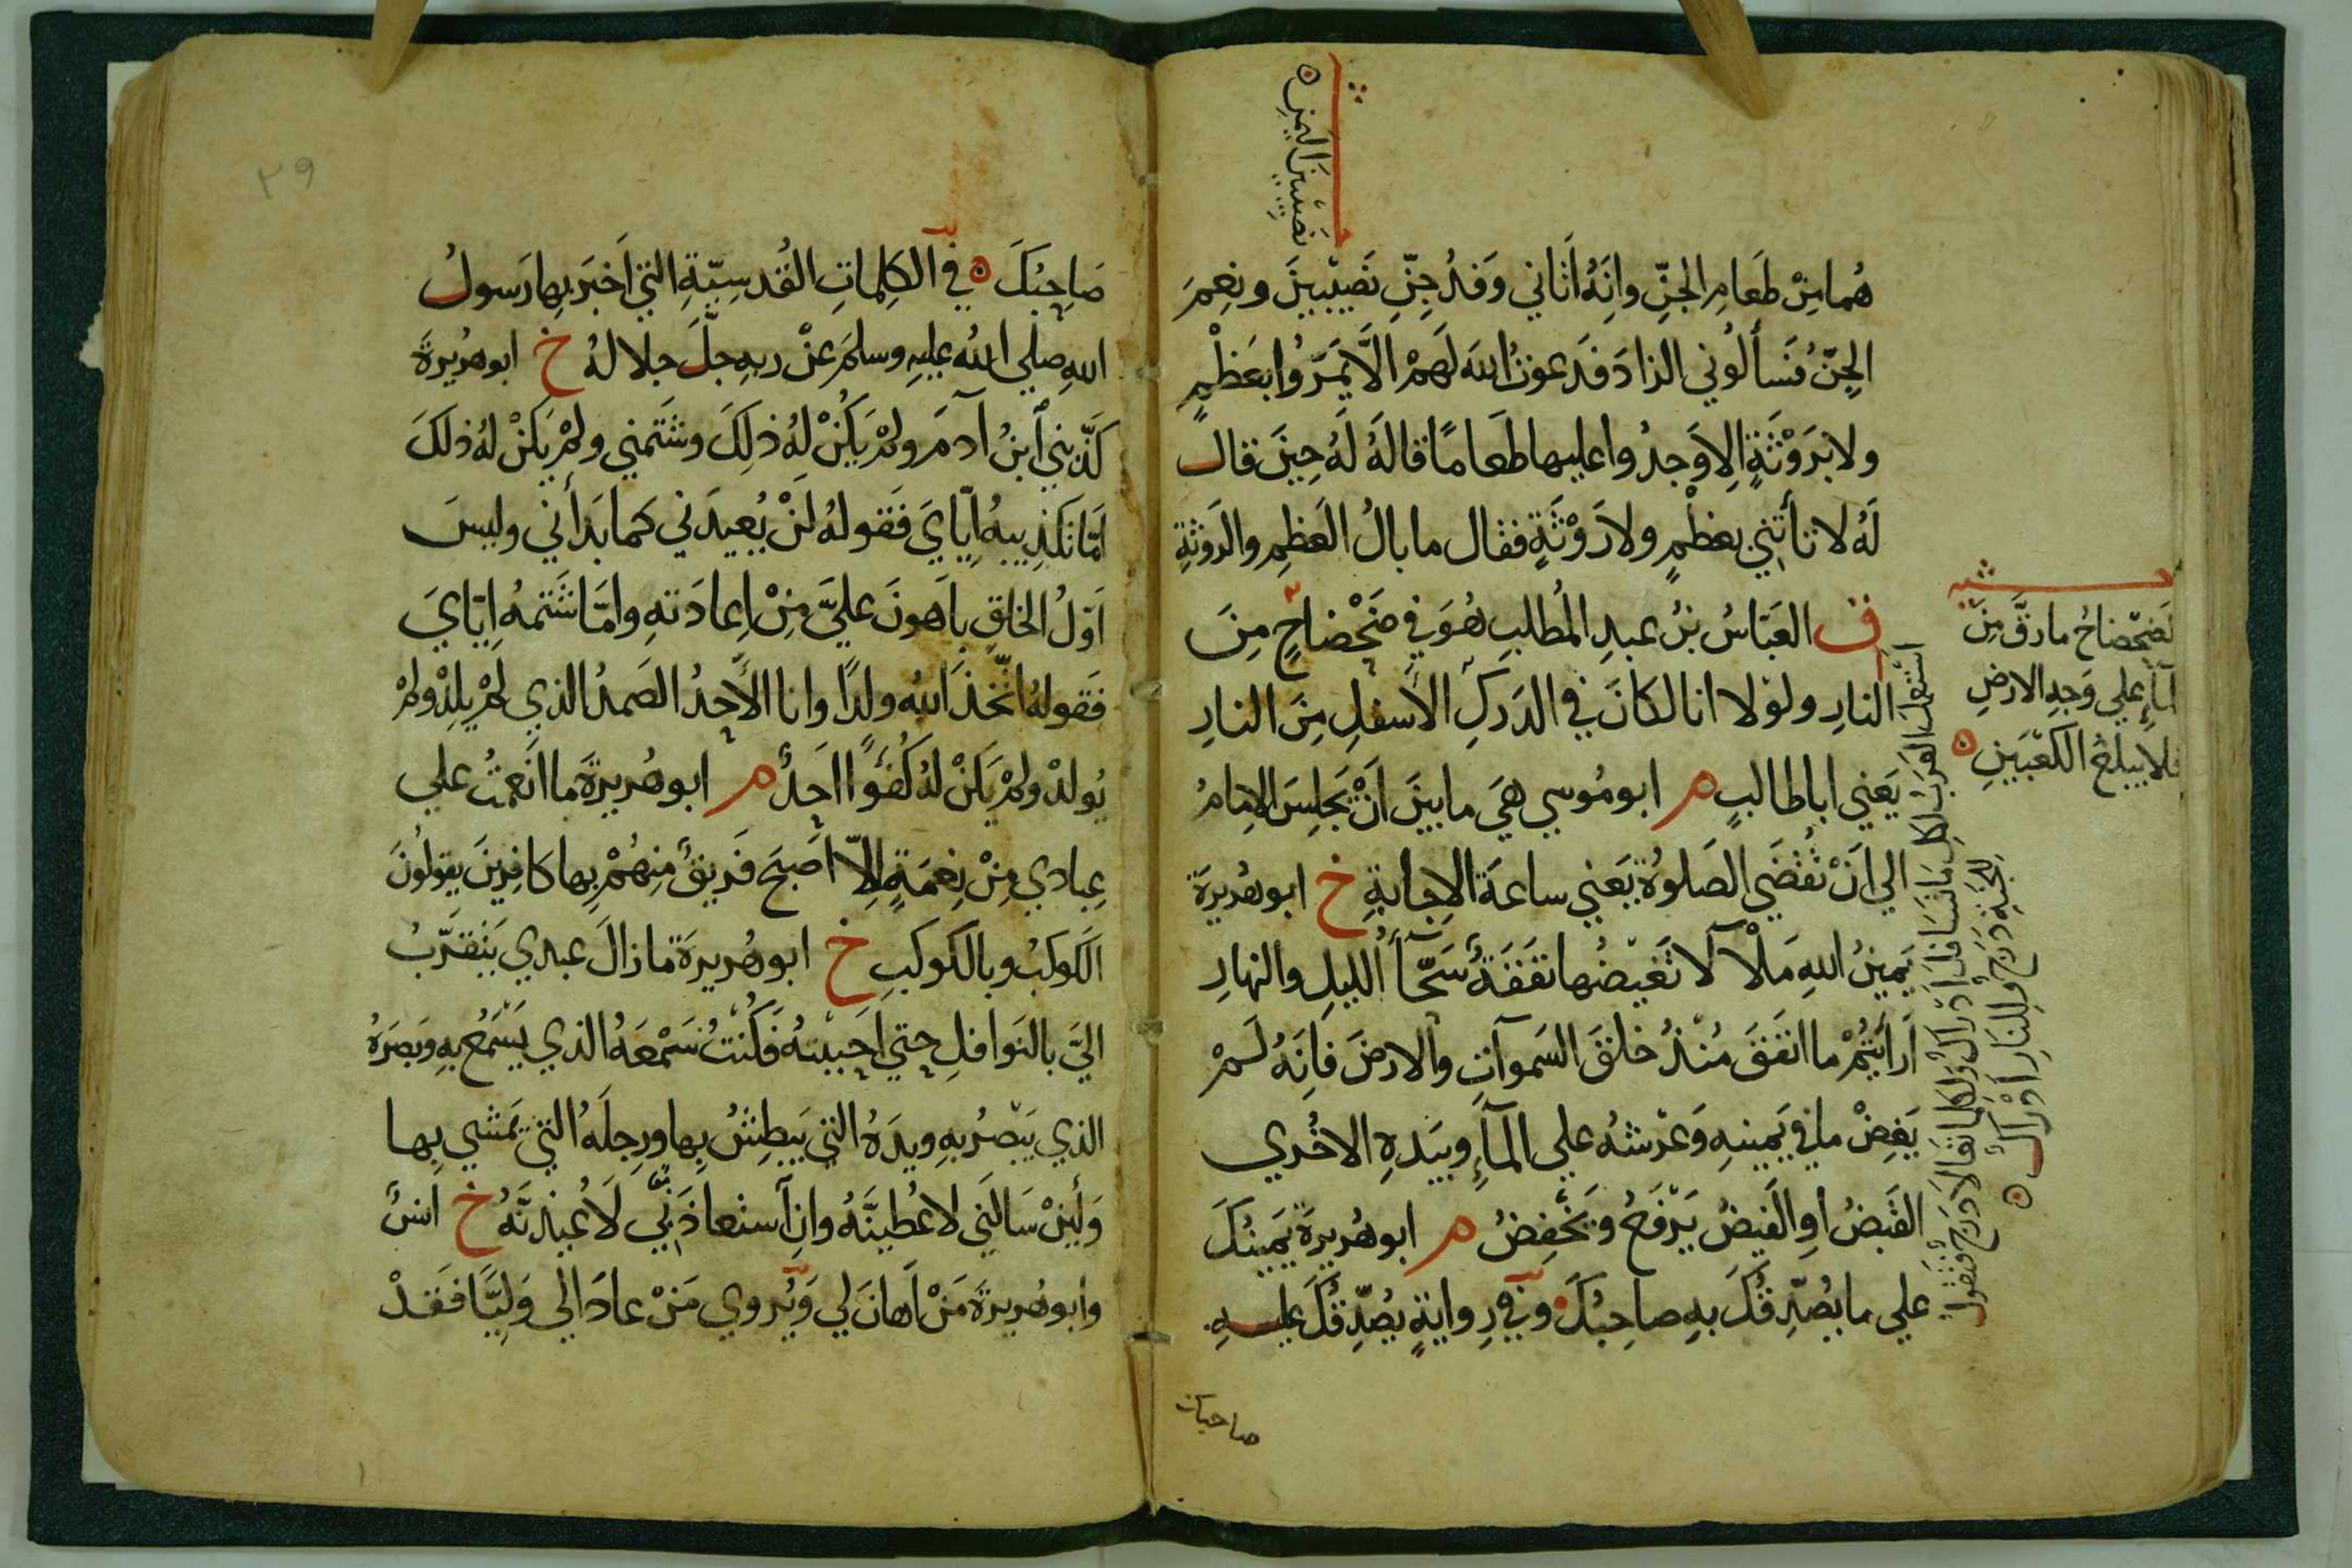 نَصِيبين اليمن ه
هُما مِنْ طَعَامِ الجِنِّ وانَّهُ اَتاني وَفدُ جِنِّ نَصيبينَ ونِعمَ
الجِنُّ فَسأَلُوني الزادَ فَدَعوتُ اللهَ لَهمْ الَّا يَمَرّوُا بعَظْمٍ
ولا برَوْثَةٍ الا وَجدُوا عليها طَعَامًا قالهُ لَهُ حينَ قال
لَهُ لا تأتني بعظْمٍ ولا رَوْثَةٍ فقال ما بالُ العَظمِ والرَوثةِ
ف العَبّاسُ بنُ عبدِ المُطلبِ هُوَ في ضَحْضاحٍ مِنَ
النارِ ولوْلا انا لكانَ في الدَركِ الأسفلِ مِنَ النارِ
يَعني اباطالبٍ م ابو مُوسي هيَ ما بينَ اَنْ يَجلِسَ الامامُ
الي اَنْ تُقْضَي الصَلوةُ يَعني ساعةَ الاجابةِ خ ابو هُريرَة
يَمينُ اللهِ مَلْآ لا تَغيضُها نَفَقَةٌ سَحّآءُ الليلِ والنهارِ
اَرأَيتُمْ ما انفَقَ مُنذُ خلقَ السَموآتِ والارضَ فاِنَّهُ لَمْ
يَغِضْ ما في يَمينهِ وَعرْشهُ علي المآءِ وبيَدهِ الاخُري
القَبضُ أوِ الفَيضُ يَرْفَعُ ويَخْفِضُ م ابو هُريرَةَ يَمينُكَ
علي ما يُصَدِّقُكَ بهِ صاحِبُكَ وفي رِوايةٍ يُصَدِّقُكَ عليهِ
صاحبك
ضَحْضاحُ ما رَقَّ مِنَ
المآءِ علي وَجهِ الارضِ
فلا يبلغ الكَعْبَينِ ه
استعمل العرب لكل ما تسافل ادراك ولكل ما تعالا درج فتقول
للجنة درج وللنار أدراك ه
٢٩
صَاحِبُكَ ه في الكلِماتِ القُدسِيّةِ التي اَخبَر بها رَسولُ
اللهِ صلي اللهُ عليهِ وسلمَ عنْ ربهِ جلَّ جلالهُ خ ابو هُريرةَ
كَذّبني اَبنُ آدمَ ولمْ يَكُنْ لهُ ذلِكَ وشَتَمني ولمْ يَكنْ لهُ ذلكَ
امّا تَكذِيبهُ اِيّايَ فَقولهُ لنْ يُعيدَني كما بَدأني وليسَ
اَوّلُ الخلقِ باَهونَ عليَّ مِنْ اِعادَتهِ وامّا شَتمهُ اِيّايَ
فَقولهُ اتّخذَ اللهُ ولدًا وانا الأحدُ الصَمدُ الذي لمْ يلِدْ ولمْ
يُولدْ ولمْ يَكنْ لهُ كُفُوًا احَدٌ م ابو هُريرةَ ما انَعمتُ علي
عِبادي مِنْ نِعمَةٍ اِلّا اَصَبحَ فَريقٌ مِنهُمْ بِها كافِرينَ يقولُونَ
الكَوكبُ وبالكَوكبِ خ ابو هُريرَةَ ما زالَ عبدي يَتقَرَّبُ
اليَّ بالنوافلِ حتي اَحببتهُ فَكُنتُ سَمْعَهُ الذي يَسْمَعُ بهِ وبَصَرَهُ
الذي يَبصُرُ بهِ ويدَهُ التي يَبطِشُ بها ورِجلَهُ التي يَمشي بِها
وَلَئنْ سَاَلَني لاُعْطِيَنَّهُ وانِ آستعاذَني لَاُعيذنَّهُ خ اَنسٌ
وابو هُريرَةَ مَنْ اَهانَ لي وَيُروي مَنْ عادَا لي وَلِيًّا فَقدْ